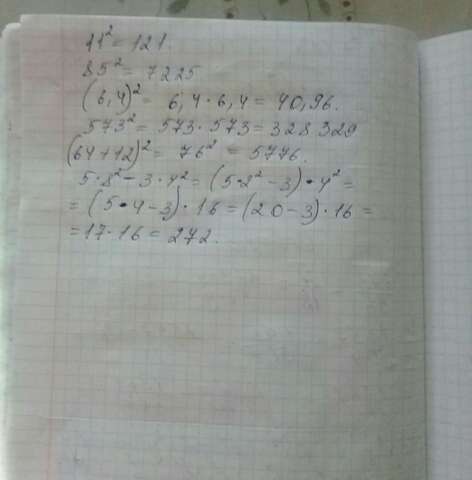 11² = 121.
85² = 7225
(6,4)² = 6,4 · 6,4 = 40,96.
573² = 573 · 573 = 328 329
(64+12)² = 76² = 5776.
5·8² - 3·4² = (5·2² - 3)·4² =
= (5·4-3)·16 = (20-3)·16 =
= 17·16 = 272.